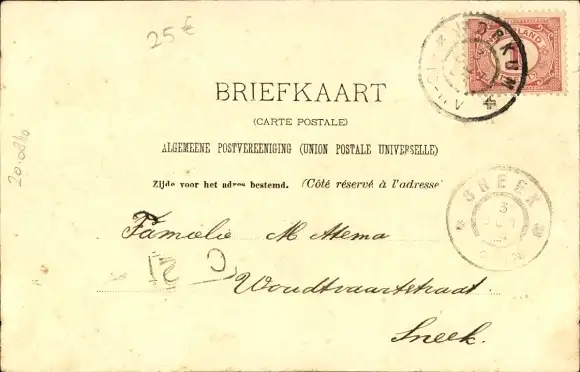 25 €
NEDERLAND
1
WORKUM
BRIEFKAART
(CARTE POSTALE)
ALGEMEENE POSTVEREENIGING (UNION POSTALE UNIVERSELLE)
Zijde voor het adres bestemd. (Côté réservé à l'adresse
SNEEK
3
Familie M Atema
Woudtvaartstraat
Sneek.